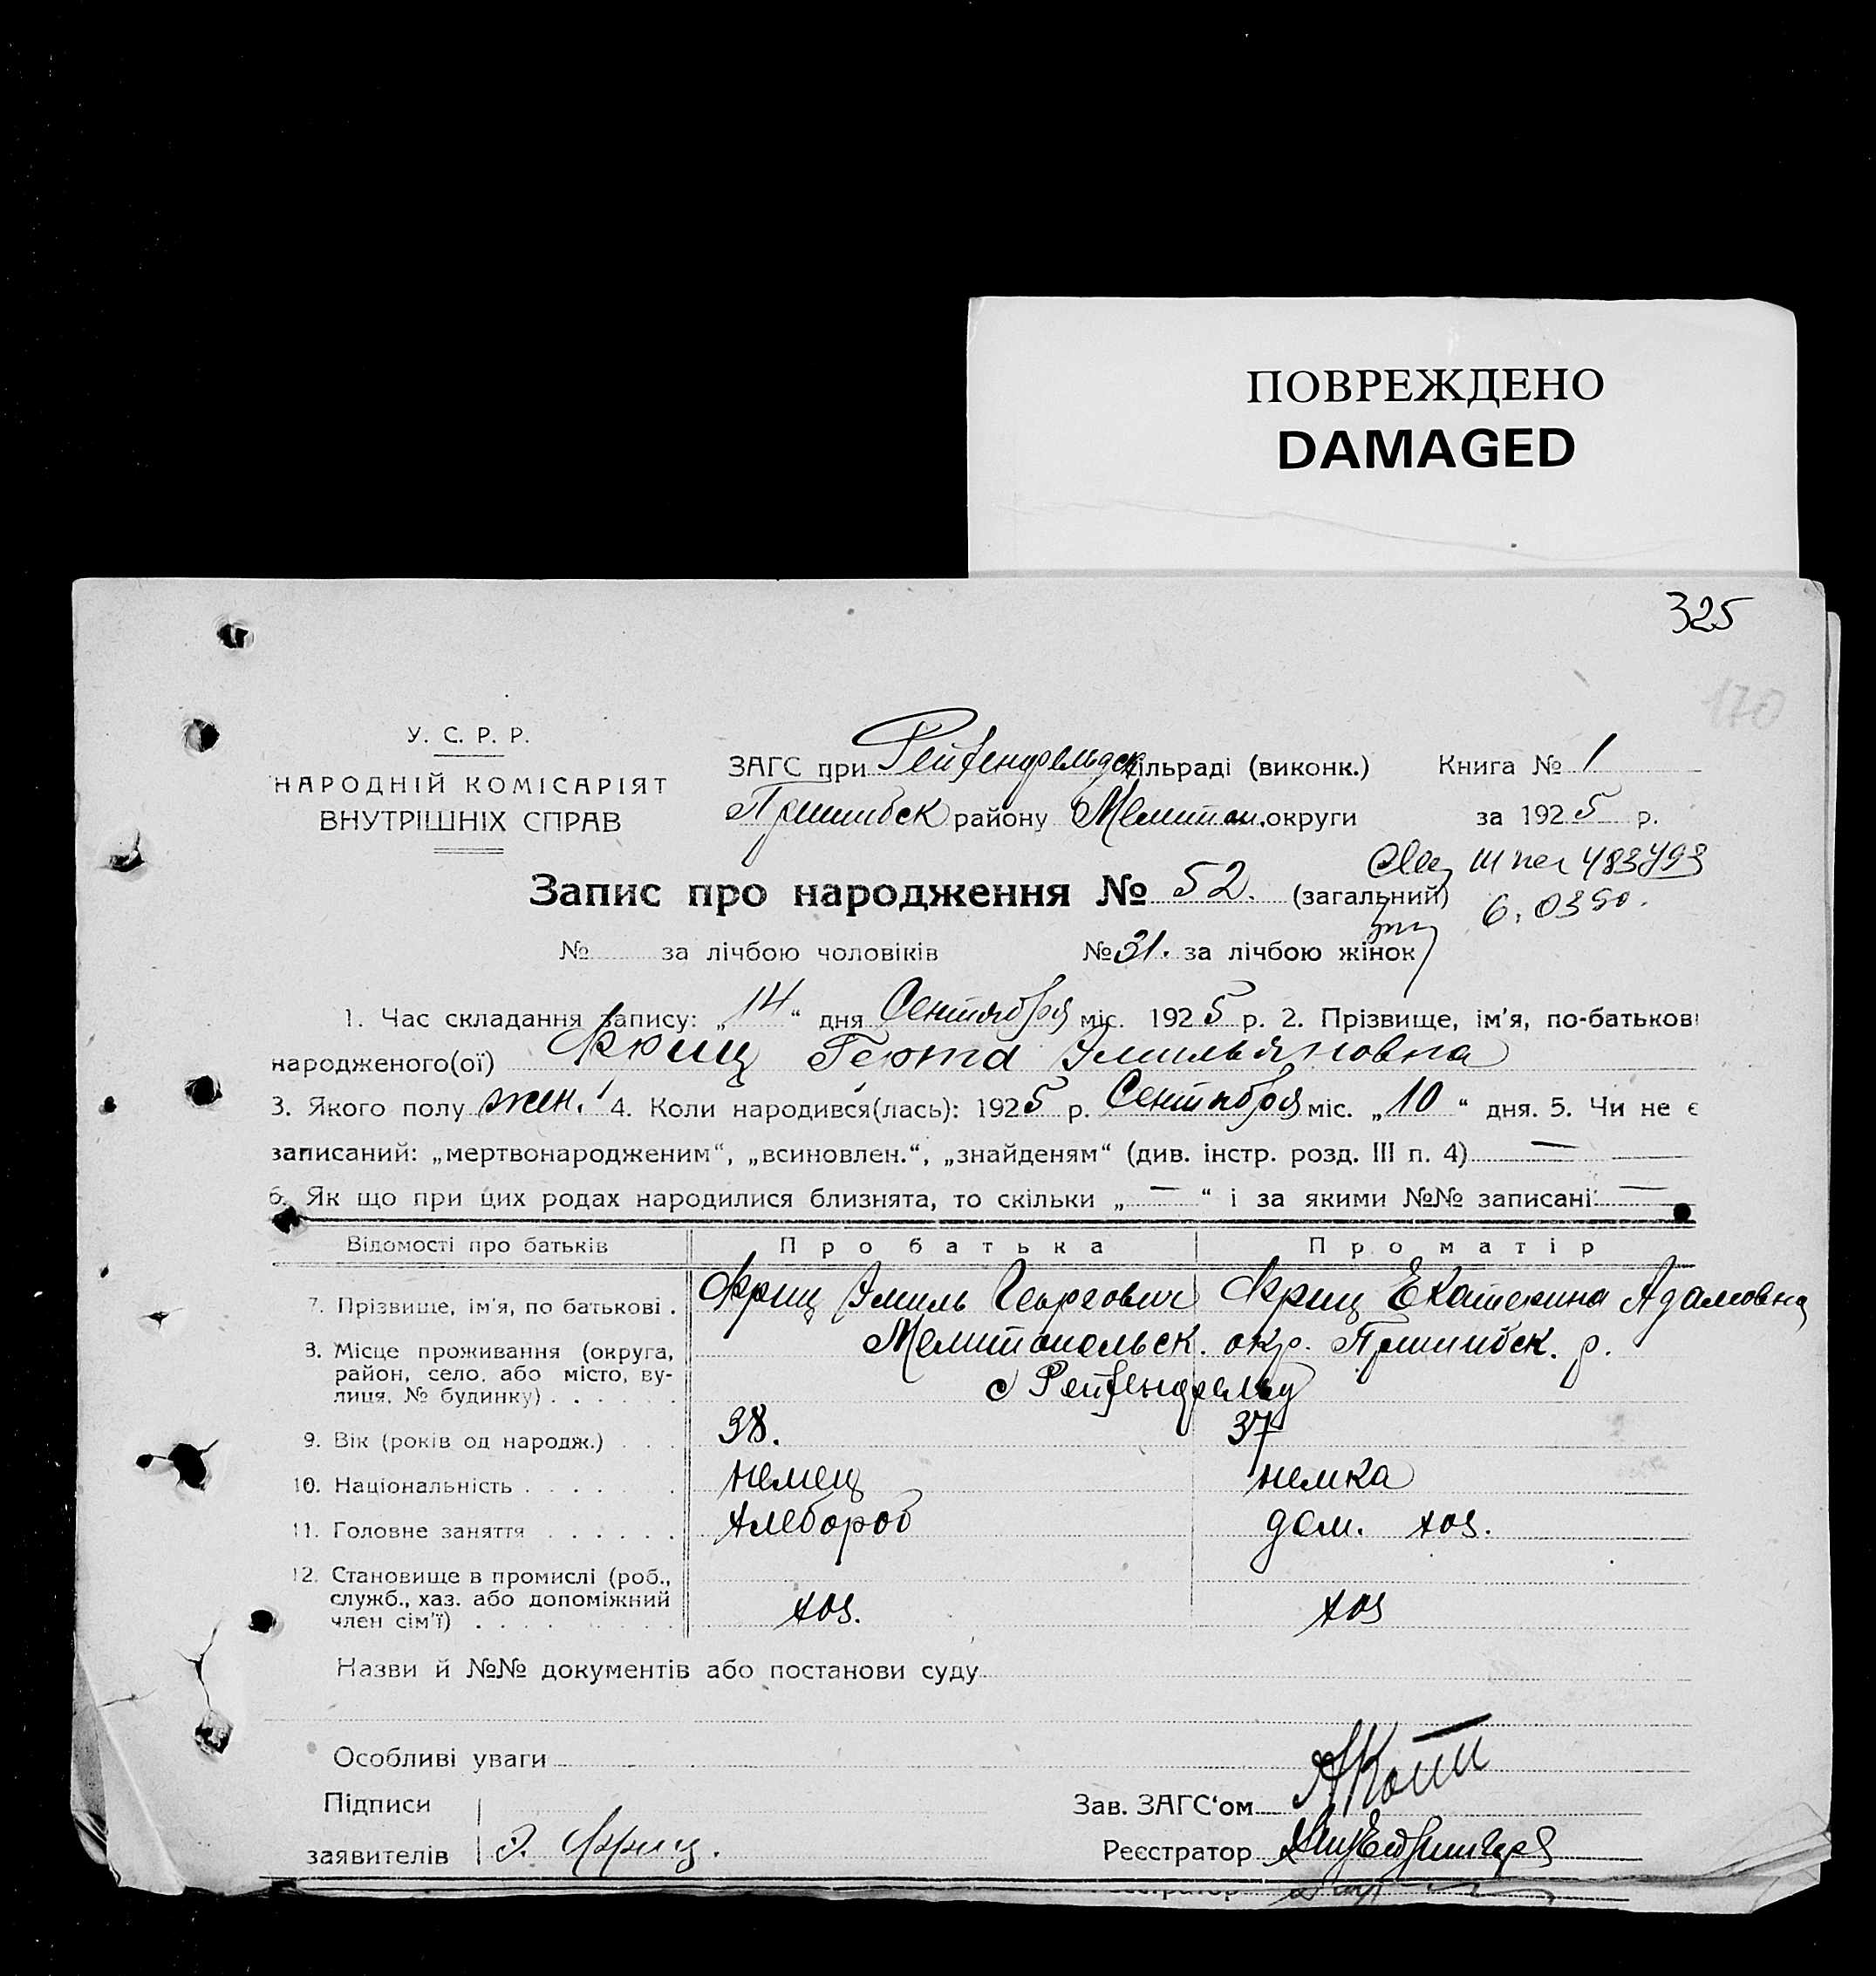 ПОВРЕЖДЕНО
DAMAGED
325
170
У. С. Р. Р.
НАРОДНІЙ КОМІСАРІЯТ
ВНУТРІШНІХ СПРАВ
ЗАГС при Рейхенфельдск сільраді (виконк.) Книга № 1
Пришибск району Мелитоп. округи за 1925 р.
Запис про народження № 52. (загальний)
№ за лічбою чоловіків № 31. за лічбою жінок
1. Час складання запису: „14“ дня Сентября міс. 1925 р. 2. Прізвище, ім'я, по-батькові
народженого(ої) Фриц Герта Эмильяновна
3. Якого полу жен. 4. Коли народився(лась): 1925 р. Сентября міс. „10“ дня. 5. Чи не є
записаний: „мертвонародженим“, „всиновлен.“, „знайденям“ (див. інстр. розд. III п. 4) —
6. Як що при цих родах народилися близнята, то скільки „—“ і за якими №№ записані: —
Відомості про батьків Про батька Про матір
7. Прізвище, ім'я, по батькові . Фриц Эмиль Георгович Фриц Екатерина Адамовна
8. Місце проживання (округа, район, село. або місто, ву- лиця, № будинку) . . . . . . Мелитопольск. окр. Пришибск. р.
с Рейхенфельд
9. Вік (років од народж.) . . . 38. 37
10. Національність . . . . . немец немка
11. Головне заняття . . . . . . хлебороб дом. хоз.
12. Становище в промислі (роб., служб., хаз. або допоміжний член сім'ї) . . . . . . . . . хоз. хоз
Назви й №№ документів або постанови суду
Особливі уваги
Підписи
заявителів Э. Фриц.
Зав. ЗАГС‘ом АКотт
Реєстратор